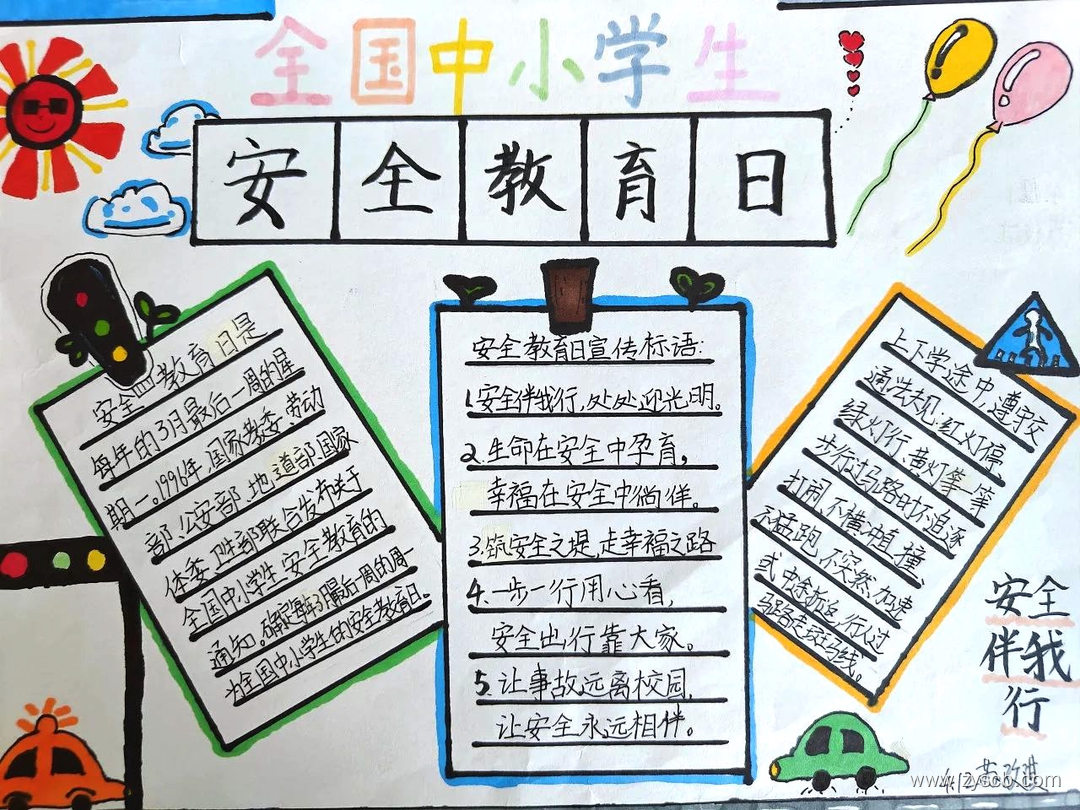 全国中小学生
安全教育日
安全教育日是
每年的3月最后一周的星
期一。1996年国家教委、劳动
部、公安部、地道部国家
体委、卫生部联合发布关于
全国中小学生安全教育的
通知。确定每年3月最后一周的周一
为全国中小学生的安全教育日。
安全教育日宣传标语:
1.安全伴我行,处处迎光明。
2.生命在安全中孕育。
幸福在安全中徜徉。
3.筑安全之堤,走幸福之路
4.一步一行用心看,
安全出行靠大家。
5.让事故远离校园,
让安全永远相伴。
上下学途中遵守交
通法规:红灯停,
绿灯行、黄灯等一等
步行过马路时不追逐
打闹,不横冲直撞、
不猛跑,不突然加速
或中途折返,行人过
马路走斑马线。
安全
伴我
行
www.lzyscb.com